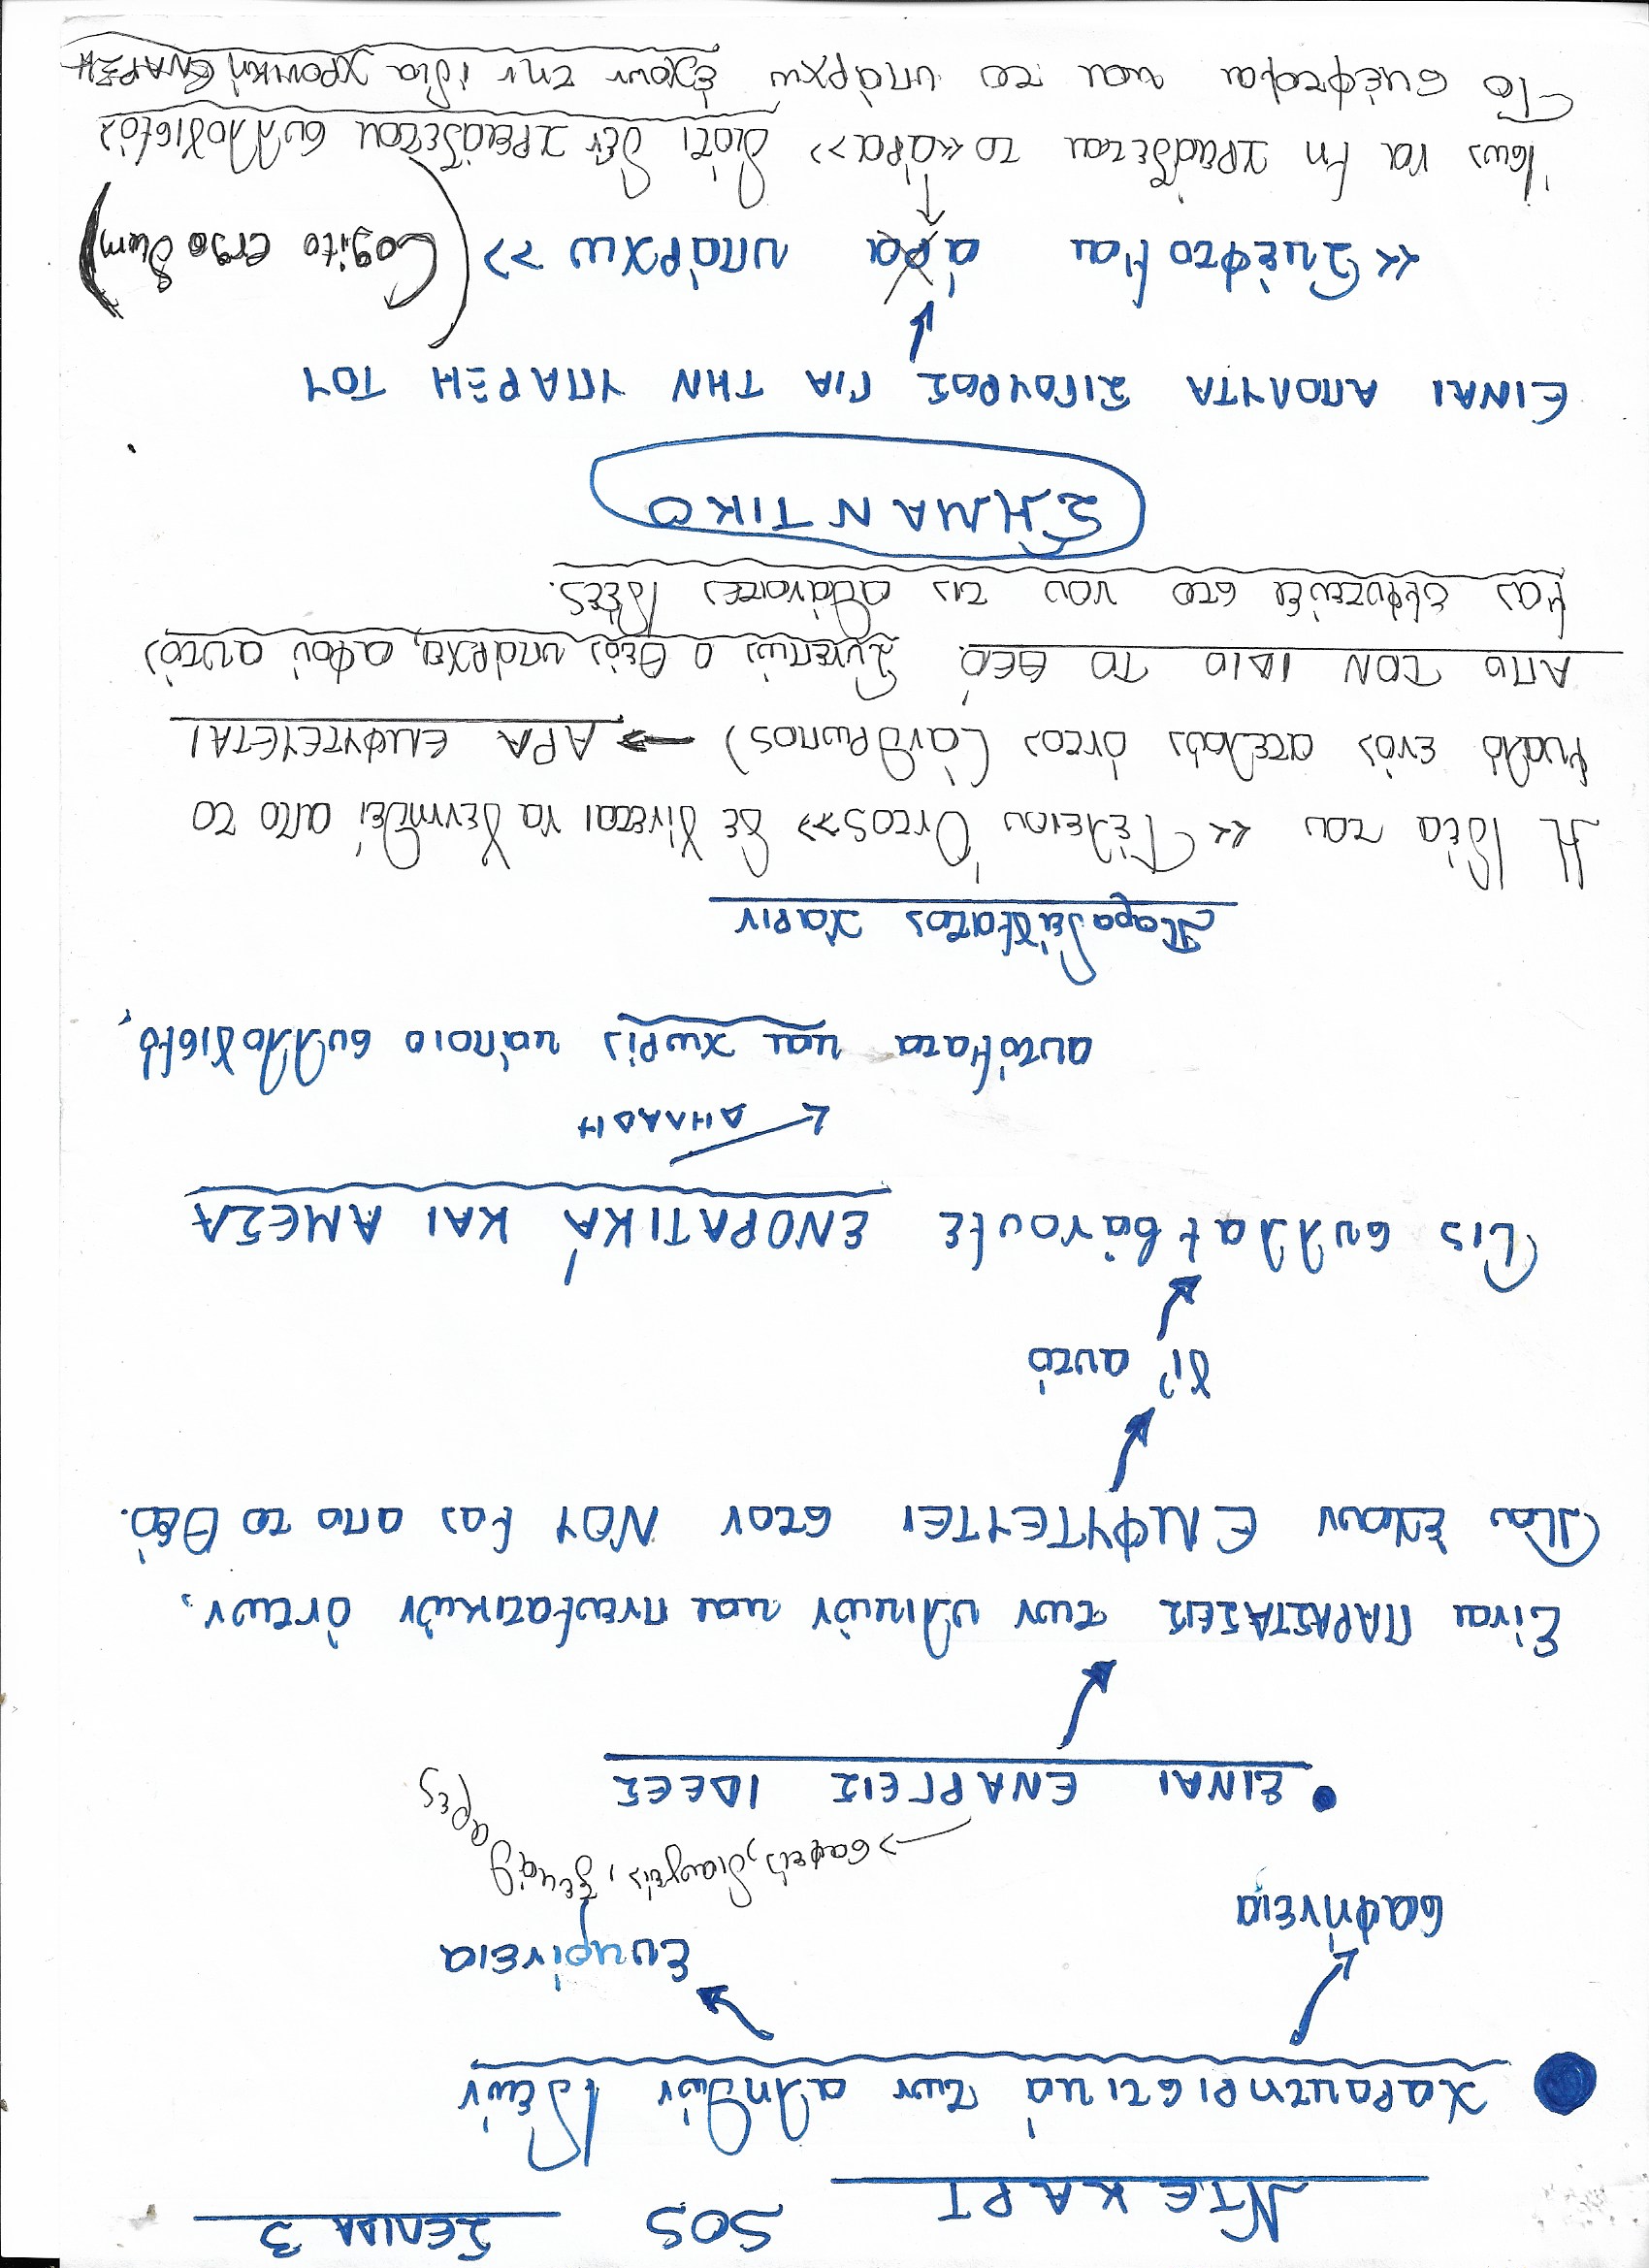 ΝΤΕΚΑΡΤ SOS ΣΕΛΙΔΑ 3
Χαρακτηριστικά των αληθών Ιδεών
σαφήνεια Ευκρίνεια
→ σαφείς, διαυγείς, ξεκάθαρες
• ΕΙΝΑΙ ΕΝΑΡΓΕΙΣ ΙΔΕΕΣ
Είναι ΠΑΡΑΣΤΑΣΕΙΣ των υλικών και πνευματικών όντων,
που έχουν ΕΜΦΥΤΕΥΤΕΙ στον ΝΟΥ μας απο το Θεό.
γι' αυτό
τις συλλαμβάνουμε ΕΝΟΡΑΤΙΚΆ ΚΑΙ ΑΜΕΣΑ
ΔΗΛΑΔΗ
αυτόματα και χωρίς κάποιο συλλογισμό,
Παραδείγματος χάριν
Η Ιδέα του «Τέλειου Όντος» δε γίνεται να γεννηθεί απο το
μυαλό ενός ατελούς όντος (άνθρωπος) → ΑΡΑ ΕΜΦΥΤΕΥΕΤΑΙ
ΑΠΟ ΤΟΝ ΙΔΙΟ ΤΟ ΘΕΌ. Συνεπώς ο Θεός υπάρχει, αφού αυτός
μας εμφυτεύει στο νου τις αθάνατες Ιδέες.
ΣΗΜΑΝΤΙΚΟ
ΕΙΝΑΙ ΑΠΟΛΥΤΑ ΣΙΓΟΥΡΟΣ ΓΙΑ ΤΗΝ ΥΠΑΡΞΗ ΤΟΥ
«Σκέφτομαι άρα υπάρχω» (Cogito ergo Sum)
Ίσως να μη χρειάζεται το «άρα» γιατί δεν χρειάζεται συλλογισμός
Το σκέφτομαι και το υπάρχω έχουν την ίδια χρονική ΕΝΑΡΞΗ